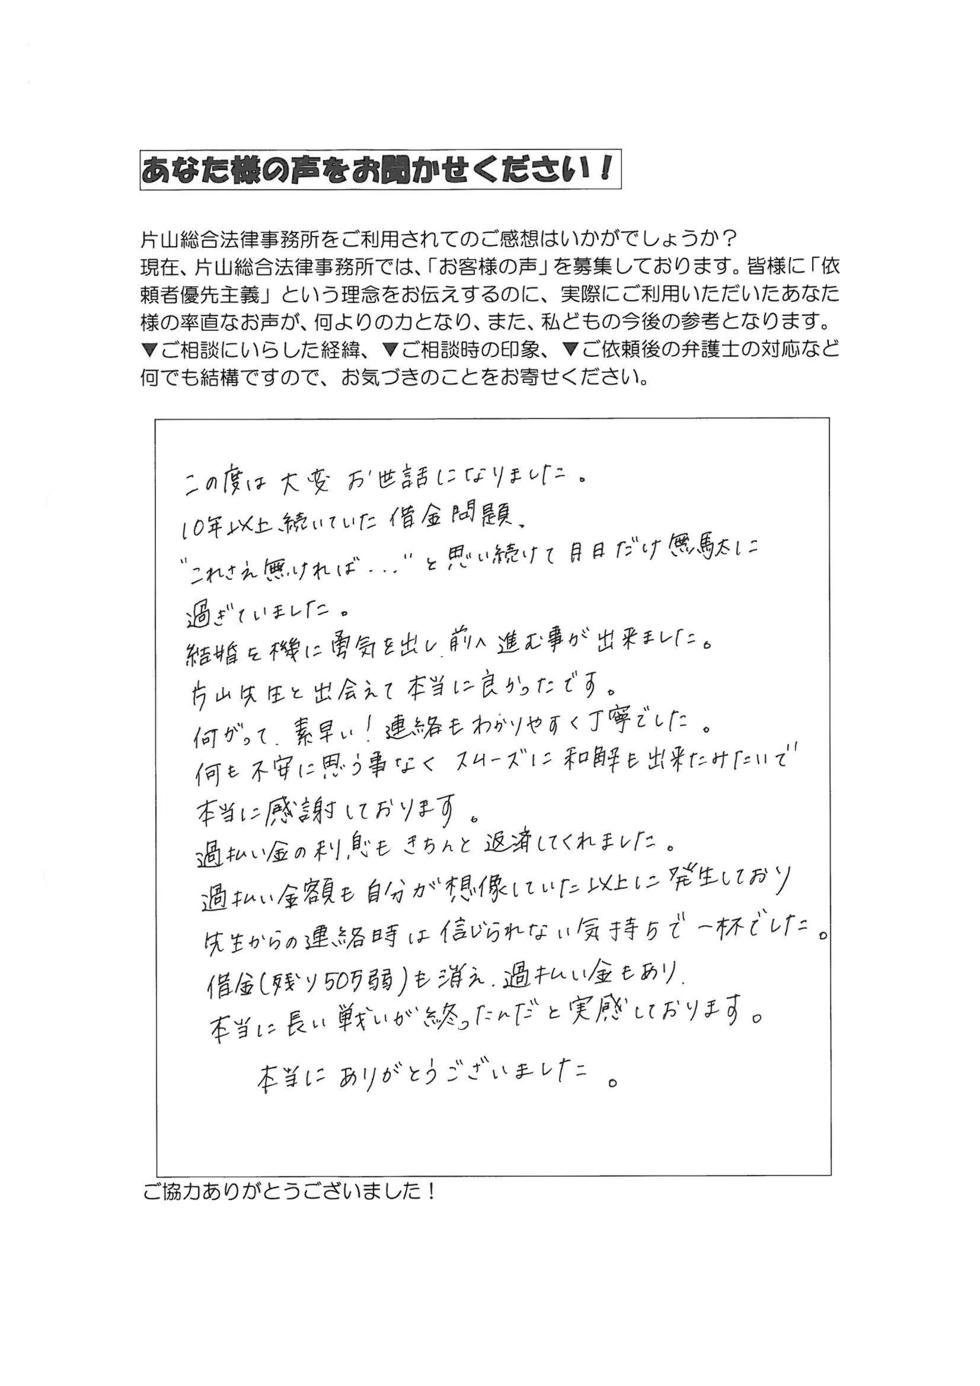 あなた様の声をお聞かせください！
片山総合法律事務所をご利用されてのご感想はいかがでしょうか？
現在、片山総合法律事務所では、「お客様の声」を募集しております。皆様に「依
頼者優先主義」という理念をお伝えするのに、実際にご利用いただいたあなた
様の率直なお声が、何よりの力となり、また、私どもの今後の参考となります。
▼ご相談にいらした経緯、▼ご相談時の印象、▼ご依頼後の弁護士の対応など
何でも結構ですので、お気づきのことをお寄せください。
この度は大変お世話になりました。
10年以上続いていた借金問題、
"これさえ無ければ..."と思い続けて月日だけ無駄に
過ぎていました。
結婚を機に勇気を出し、前へ進む事が出来ました。
片山先生と出会えて本当に良かったです。
何がって、素早い！連絡もわかりやすく丁寧でした。
何も不安に思う事なくスムーズに和解も出来たみたいで
本当に感謝しております。
過払い金の利息もきちんと返済してくれました。
過払い金額も自分が想像していた以上に発生しており
先生からの連絡時は信じられない気持ちで一杯でした。
借金(残り50万弱)も消え、過払い金もあり、
本当に長い戦いが終ったんだと実感しております。
本当にありがとうございました。
ご協力ありがとうございました！